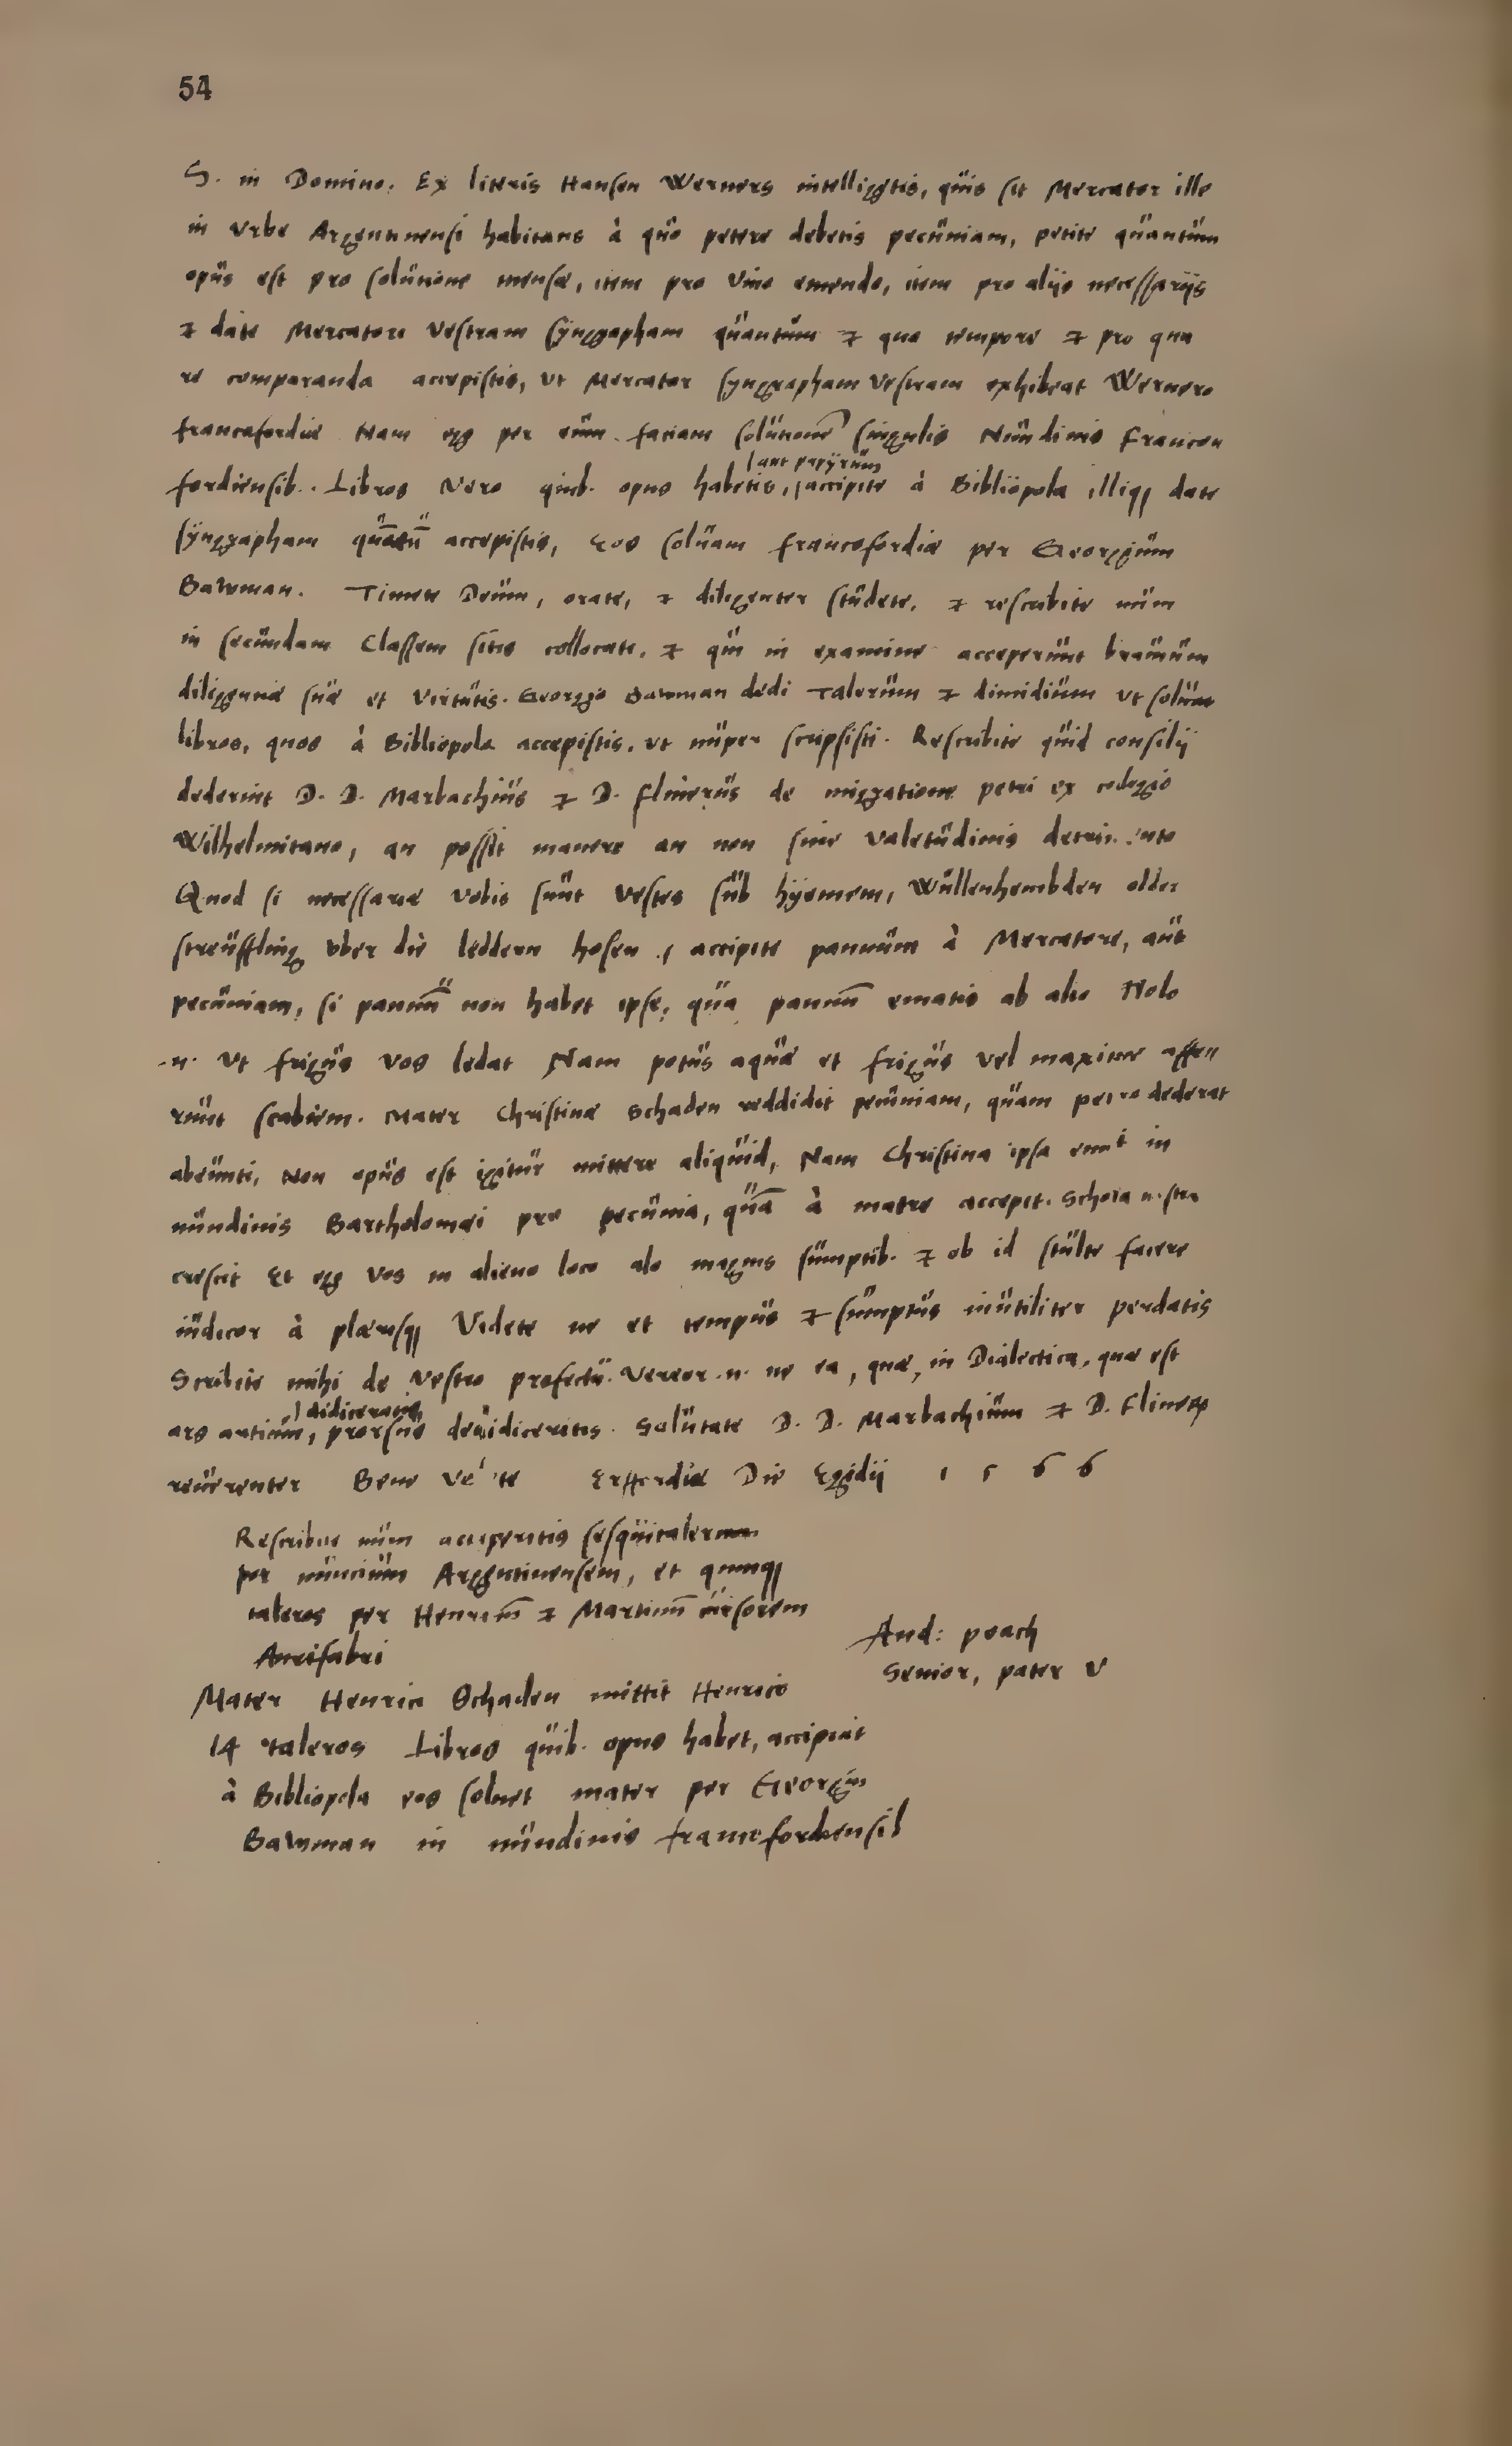 54
S. in Domino. Ex literis Hansen Werners intelligetis, quis sit Mercator ille
in Vrbe Argentinensi habitans à quo petere debetis pecuniam, petite quantum
opus est pro solutione mensæ, item pro vino emendo, item pro alijs necessarijs
& date Mercatori vestram syngrapham quantum & quo tempore & pro qua
re comparanda accepistis, ut Mercator syngrapham vestram exhibeat Wernero
francofordiæ Nam ego per eum faciam solutionē singulis Nundinis francou
fordiensib. Libros Vero quib. opus habetis,
aut papyrum
accipite à Bibliopola illiq; date
syngrapham quātū accepistis, Eos soluam francofordiæ per Georgium
Bawman. Timete Deum, orate, & diligenter studete. & rescribite num
in secundam Classem sitis collocati. & qui in examine acceperunt
diligentiæ suæ et virtutis. Georgio Bawman dedi Talerum & dimidium ut soluat
libros, quos à Bibliopola accepistis. ut nuper scripsisti. Rescribite quid consilij
dederint D. D. Marbachius & D. flinerus de migratione petri ex collegio
Wilhelmitano, an possit manere an non sine valetudinis
Quod si necessariæ vobis sunt vestes sub hyemem, Wullenhembden older
streuffling vber die leddern hosen, accipite pannum à Mercatore, aut
pecuniam, si pannū non habet ipse, qua pannū ematis ab alio Nolo
.n. ut frigus vos ledat Nam potus aquæ et frigus vel maxime affe
runt scabiem. Mater Christinæ Schaden reddidit pecuniam, quam petro dederat
abeunti, Non opus est igitur mittere aliquid, Nam Christina ipsa emit in
nundinis Bartholomæi pro pecunia, quā à matre accepit. Schola nostra
crescit Et ego vos in alieno loco alo magnis sumptib. & ob id stulte facere
iudicor à plærisq; Videte ne et tempus & sumptus inutiliter perdatis
Scribite mihi de vestro profectu. Vereor .n. ne ea, quæ, in Dialectica, quæ est
ars artium,
didiceratis,
prorsus dedidiceritis. Salutate D. D. Marbachium & D. Flinerū
reuerenter Bene Valete Erffordiæ Die Egidij 1 5 6 6
Rescribite num acceperitis sesquitalerum
per nuncium Argentinensem, et quinq;
taleros per Henricū & Martinū
Aurifabri
And: poach
Senior, pater v
Mater Henrici Schaden mittit Henrico
14 taleros Libros quib. opus habet, accipiat
à Bibliopola eos soluet mater per Georgiū
Bawman in nundinis francofordiensib